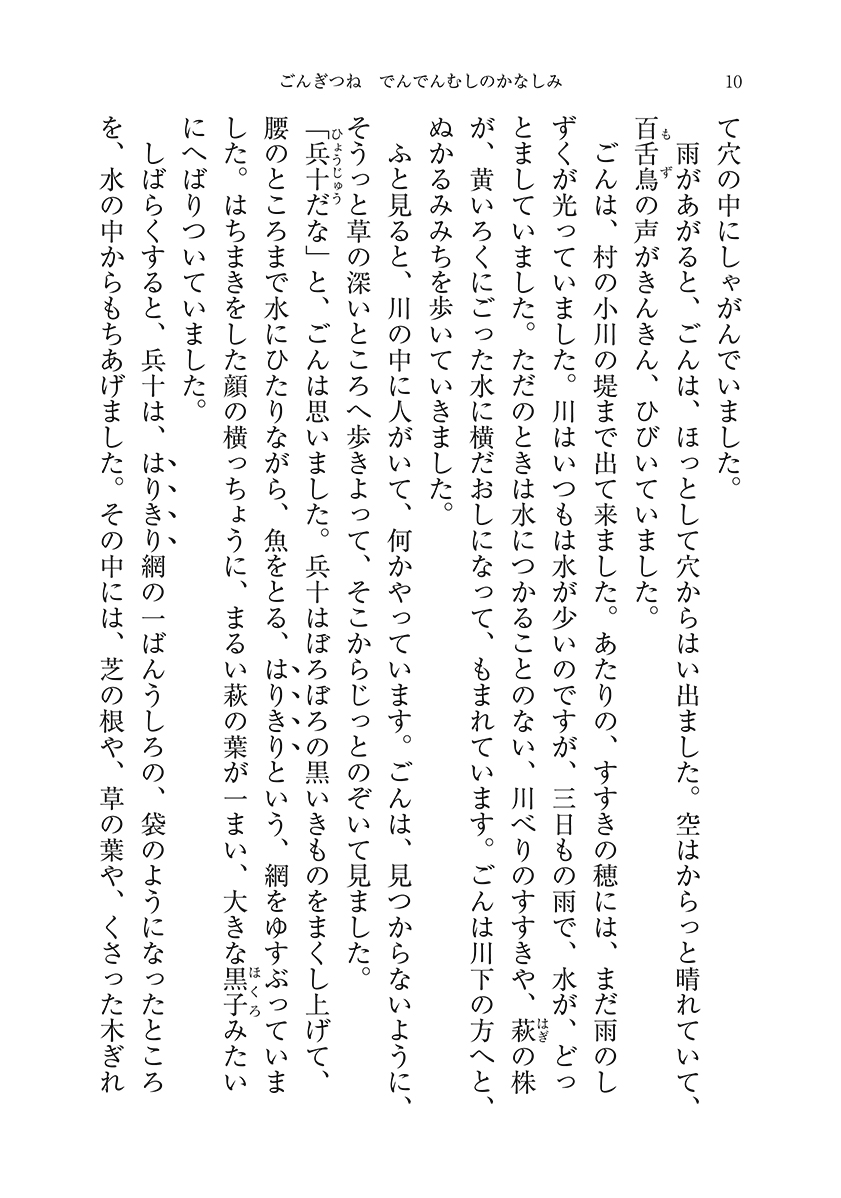 ごんぎつね　でんでんむしのかなしみ
10
て穴の中にしゃがんでいました。
　雨があがると、ごんは、ほっとして穴からはい出ました。空はからっと晴れていて、
百舌鳥の声がきんきん、ひびいていました。
もず
　ごんは、村の小川の堤まで出て来ました。あたりの、すすきの穂には、まだ雨のし
ずくが光っていました。川はいつもは水が少いのですが、三日もの雨で、水が、どっ
とましていました。ただのときは水につかることのない、川べりのすすきや、萩の株
はぎ
が、黄いろくにごった水に横だおしになって、もまれています。ごんは川下の方へと、
ぬかるみみちを歩いていきました。
　ふと見ると、川の中に人がいて、何かやっています。ごんは、見つからないように、
そうっと草の深いところへ歩きよって、そこからじっとのぞいて見ました。
「兵十だな」と、ごんは思いました。兵十はぼろぼろの黒いきものをまくし上げて、
ひょうじゅう
腰のところまで水にひたりながら、魚をとる、はりきりという、網をゆすぶっていま
した。はちまきをした顔の横っちょうに、まるい萩の葉が一まい、大きな黒子みたい
ほくろ
にへばりついていました。
　しばらくすると、兵十は、はりきり網の一ばんうしろの、袋のようになったところ
を、水の中からもちあげました。その中には、芝の根や、草の葉や、くさった木ぎれ